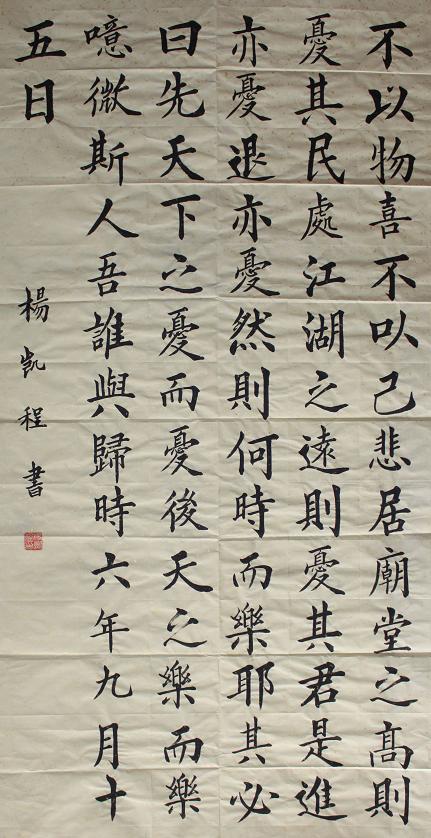 不以物喜不以己悲居廟堂之高則
憂其民處江湖之遠則憂其君是進
亦憂退亦憂然則何時而樂耶其必
曰先天下之憂而憂後天之樂而樂
噫微斯人吾誰與歸時六年九月十
五日
楊凱程書